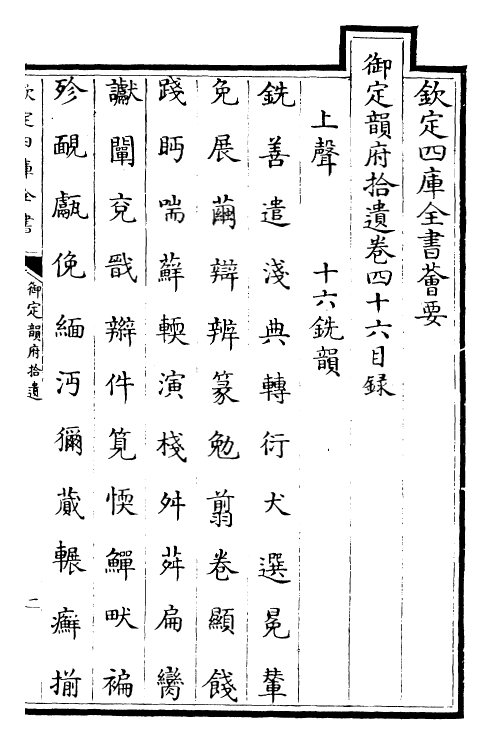 欽定四庫全書薈要
御定韻府拾遺卷四十六目録
上聲　十六銑韻
銑善遣淺典轉衍犬選冕輦
免展繭辯辨篆勉翦卷顯餞
踐眄喘蘚輭演棧舛荈扁臠
讞闡兗戩辮件筧愞鱓畎褊
殄靦甗俛緬沔獮蕆輾癬揃
欽定四庫全書
御定韻府拾遺
二